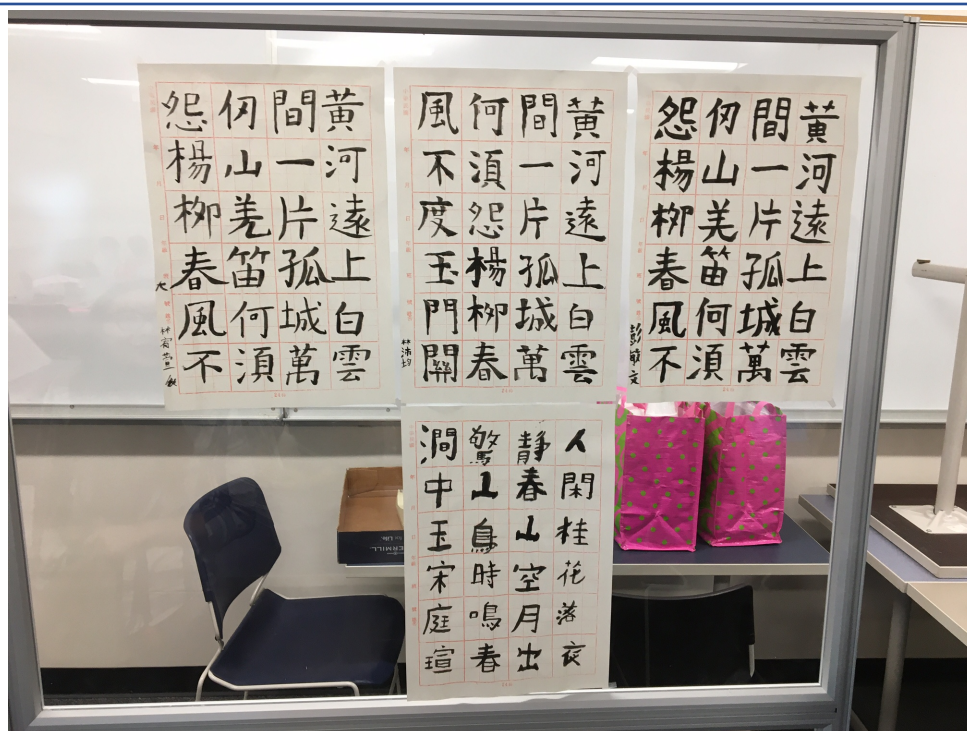 黄河遠上白雲
間一片孤城萬
仞山美笛何須
怨楊柳春風不
彭敏文
黄河遠上白雲
間一片孤城萬
何須怨楊柳春
風不度玉門關
林沛均
黄河遠上白雲
間一片孤城萬
仞山羌笛何須
怨楊柳春風不
人閑桂花落夜
静春山空月出
驚山鳥時鳴春
澗中玉宋庭瑄